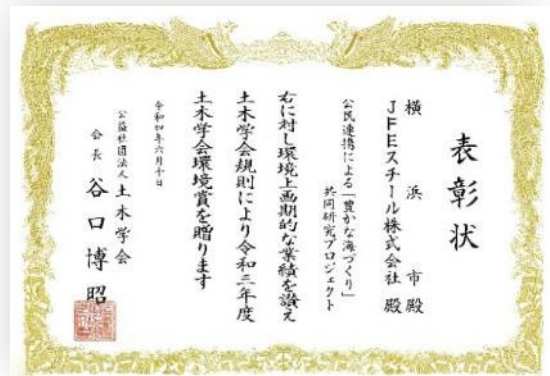 表彰状
横浜市殿
JFEスチール株式会社殿
公民連携による「豊かな海づくり」
共同研究プロジェクト
右に対し環境上画期的な業績を讃え
土木学会規則により令和三年度
土木学会環境賞を贈ります
令和四年六月十日
公益社団法人土木学会
会長 谷口博昭